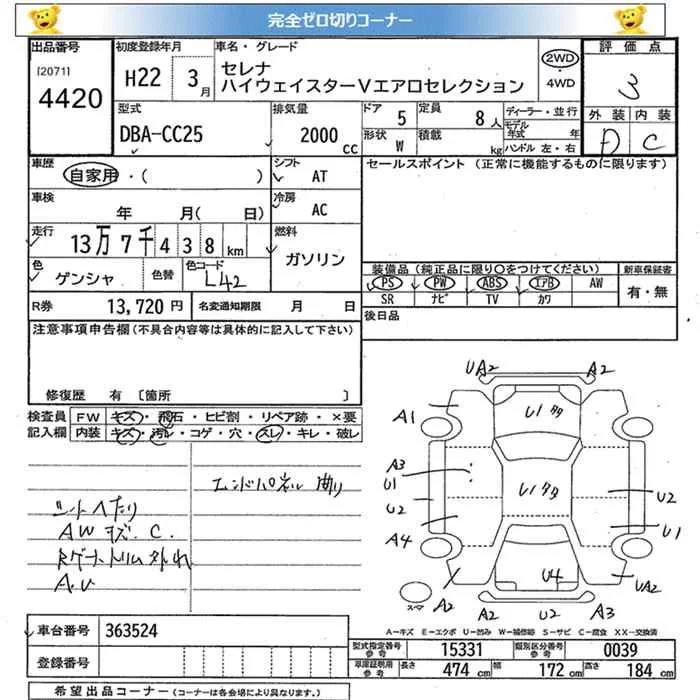 完全ゼロ切りコーナー
出品番号
[2071]
4420
初度登録年月
H22 3月
車名・グレード
セレナ
ハイウェイスターVエアロセレクション
2WD
・
4WD
評価点
3
外装 内装
D C
型式
DBA-CC25
排気量
2000 cc
ドア 5
定員 8人
形状 W
積載 kg
ディーラー・並行
モデル年式 年
ハンドル 左・右
車歴
自家用・( )
シフト
AT
セールスポイント (正常に機能するものに限ります)
車検
年 月( 日)
冷房
AC
走行
13万7千438km
燃料
ガソリン
色
ゲンシャ
色替
色コード
L42
装備品(純正品に限り○をつけてください)
新車保証書
PS PW ABS エアB AW
SR ナビ TV カワ
有・無
R券 13,720円
名変通知期限 月 日
後日品
注意事項申告欄(不具合内容等は具体的に記入して下さい)
修復歴 有 [箇所 ]
検査員
記入欄
FW キズ・飛石・ヒビ割・リペア跡・×要
内装 キズ・汚レ・コゲ・穴・スレ・キレ・破レ
エンドパネル曲り
シートへたり
AWキズ.C.
Rゲートトリム外れ
A.U
UA2 A2
A1
U1タタ
A3
U1
U2
U1タタ
U2
U1
A4
U4
A2
UA2
スペア
A2 U2 A3
A―キズ E―エクボ U―凹み W―補修跡 S―サビ C―腐食 XX―交換済
車台番号 363524
登録番号
型式指定番号
参考
15331
類別区分番号
参考
0039
車庫証明用
参考
長さ 474cm
幅 172cm
高さ 184cm
希望出品コーナー(コーナーは各会場により異なります。)